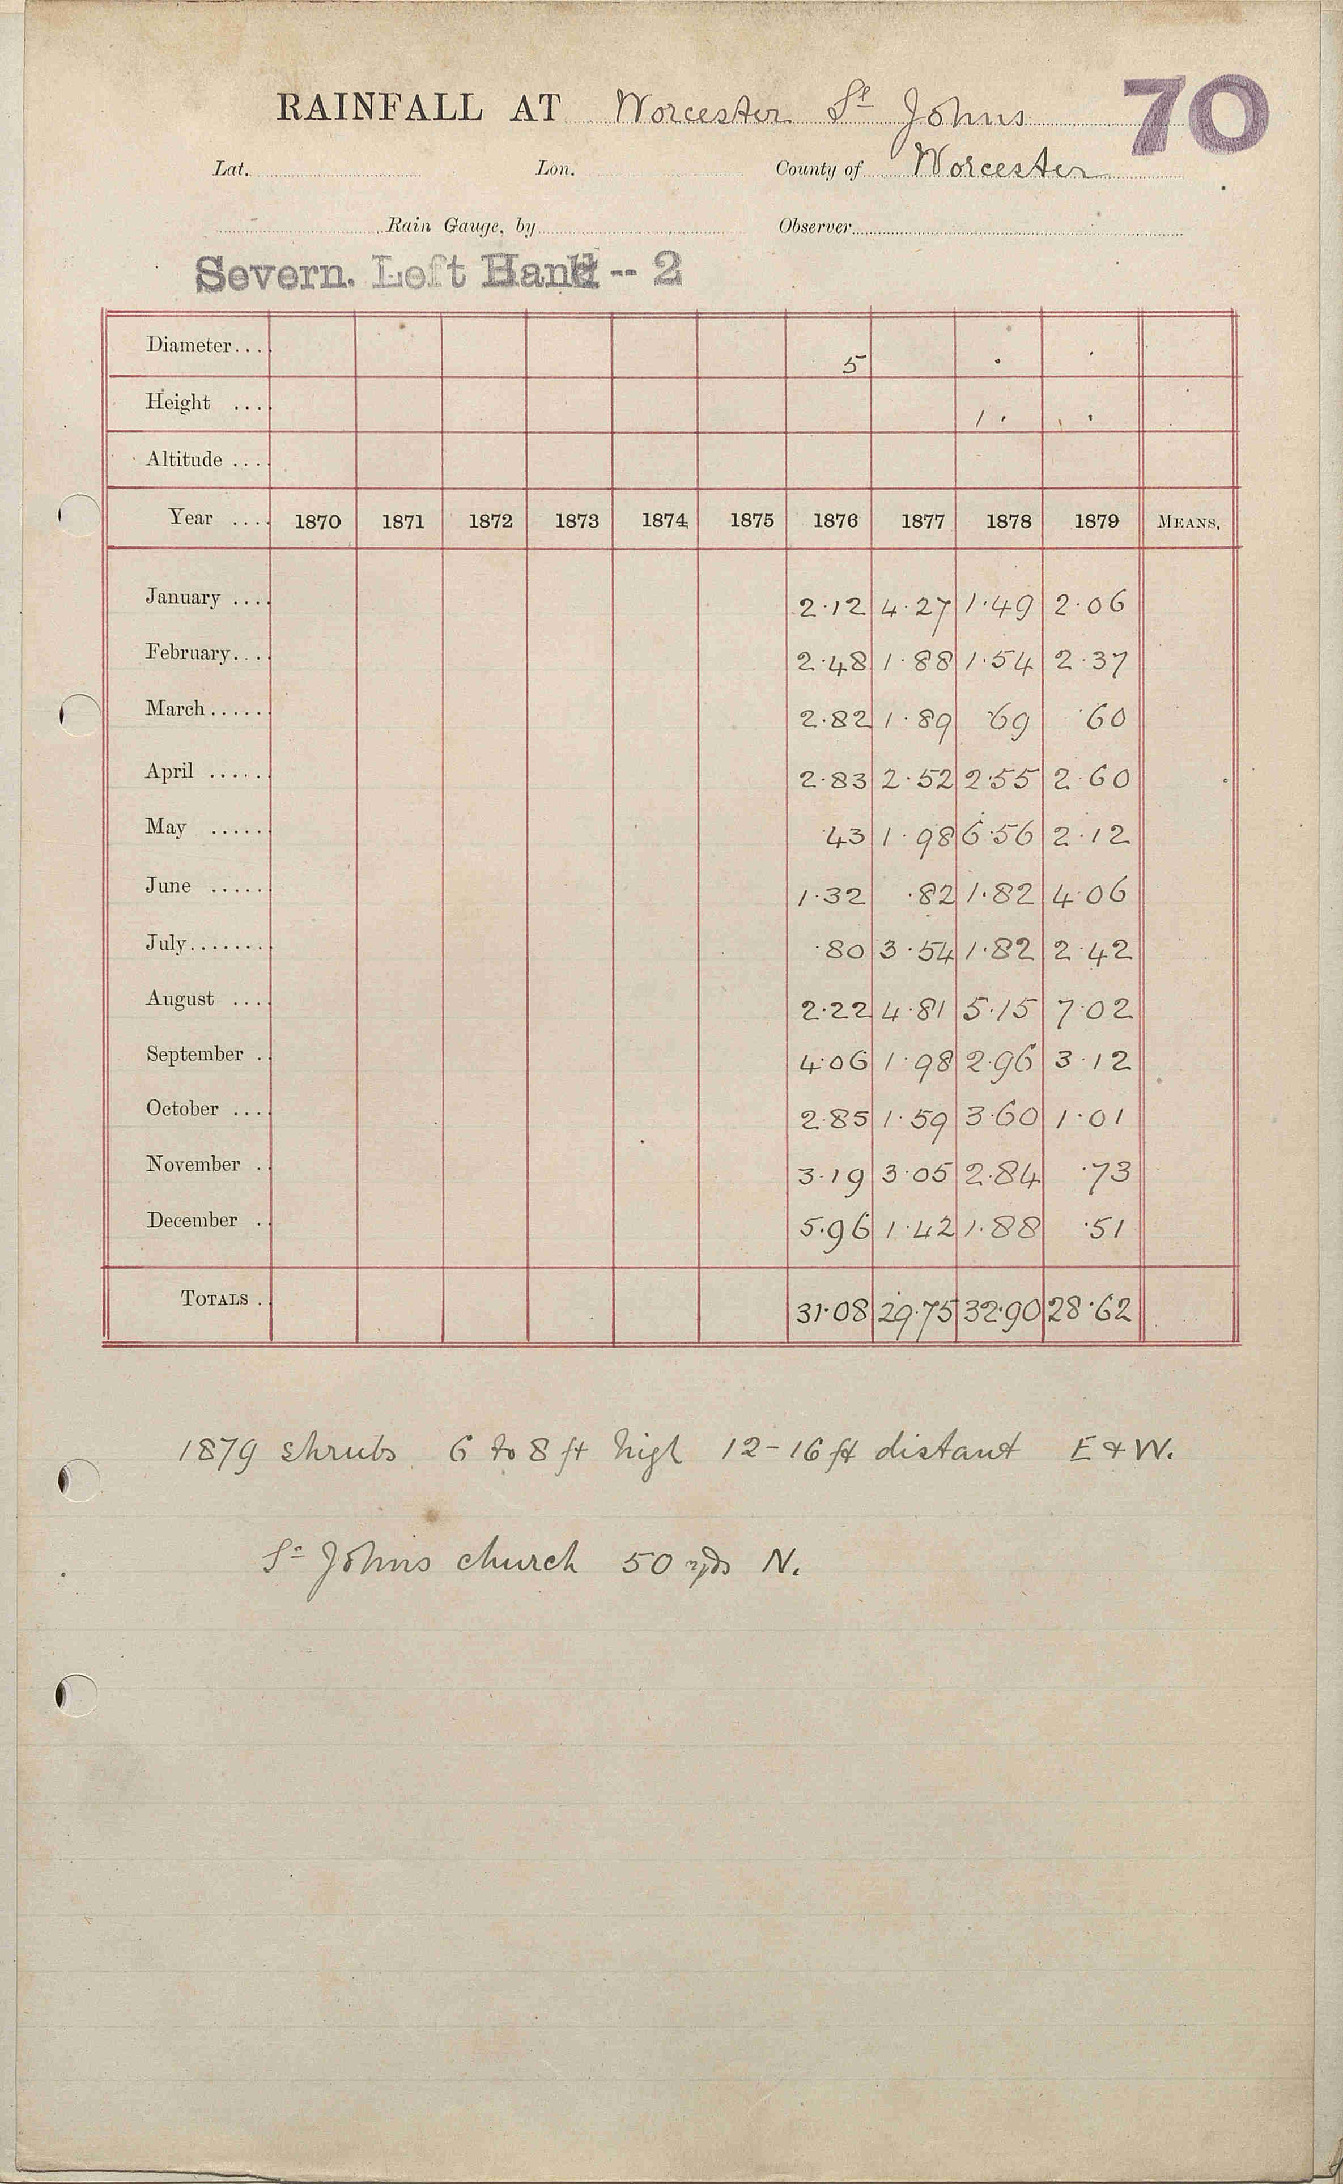 RAINFALL AT Worcester St Johns 70
Lat. Lon. County of Worcester
Rain Gauge, by Observer
Severn. Left Hand -- 2
Diameter... 5
Height .... 1
Altitude ....
Year .... 1870 1871 1872 1873 1874 1875 1876 1877 1878 1879 MEANS.
January .... 2.12 4.27 1.49 2.06
February.... 2.48 1.88 1.54 2.37
March...... 2.82 1.89 .69 .60
April ...... 2.83 2.52 2.55 2.60
May ...... .43 1.98 6.56 2.12
June ...... 1.32 .82 1.82 4.06
July........ .80 3.54 1.82 2.42
August .... 2.22 4.81 5.15 7.02
September .. 4.06 1.98 2.96 3.12
October .... 2.85 1.59 3.60 1.01
November .. 3.19 3.05 2.84 .73
December .. 5.96 1.42 1.88 .51
TOTALS .. 31.08 29.75 32.90 28.62
1879 shrubs 6 to 8 ft high 12-16 ft distant E & W.
St Johns church 50 yds N.